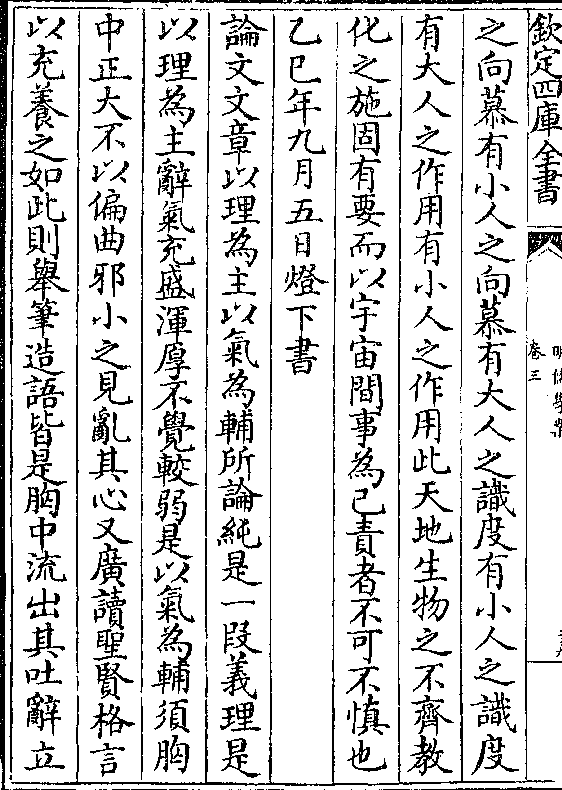 欽定四庫全書
明儒學案
卷三
之向慕有小人之向慕有大人之識度有小人之識度
有大人之作用有小人之作用此天地生物之不齊教
化之施固有要而以宇宙間事為己責者不可不慎也
乙巳年九月五日燈下書
論文文章以理為主以氣為輔所論純是一段義理是
以理為主辭氣充盛渾厚不覺較弱是以氣為輔須胸
中正大不以偏曲邪小之見亂其心又廣讀聖賢格言
以充養之如此則舉筆造語皆是胸中流出其吐辭立